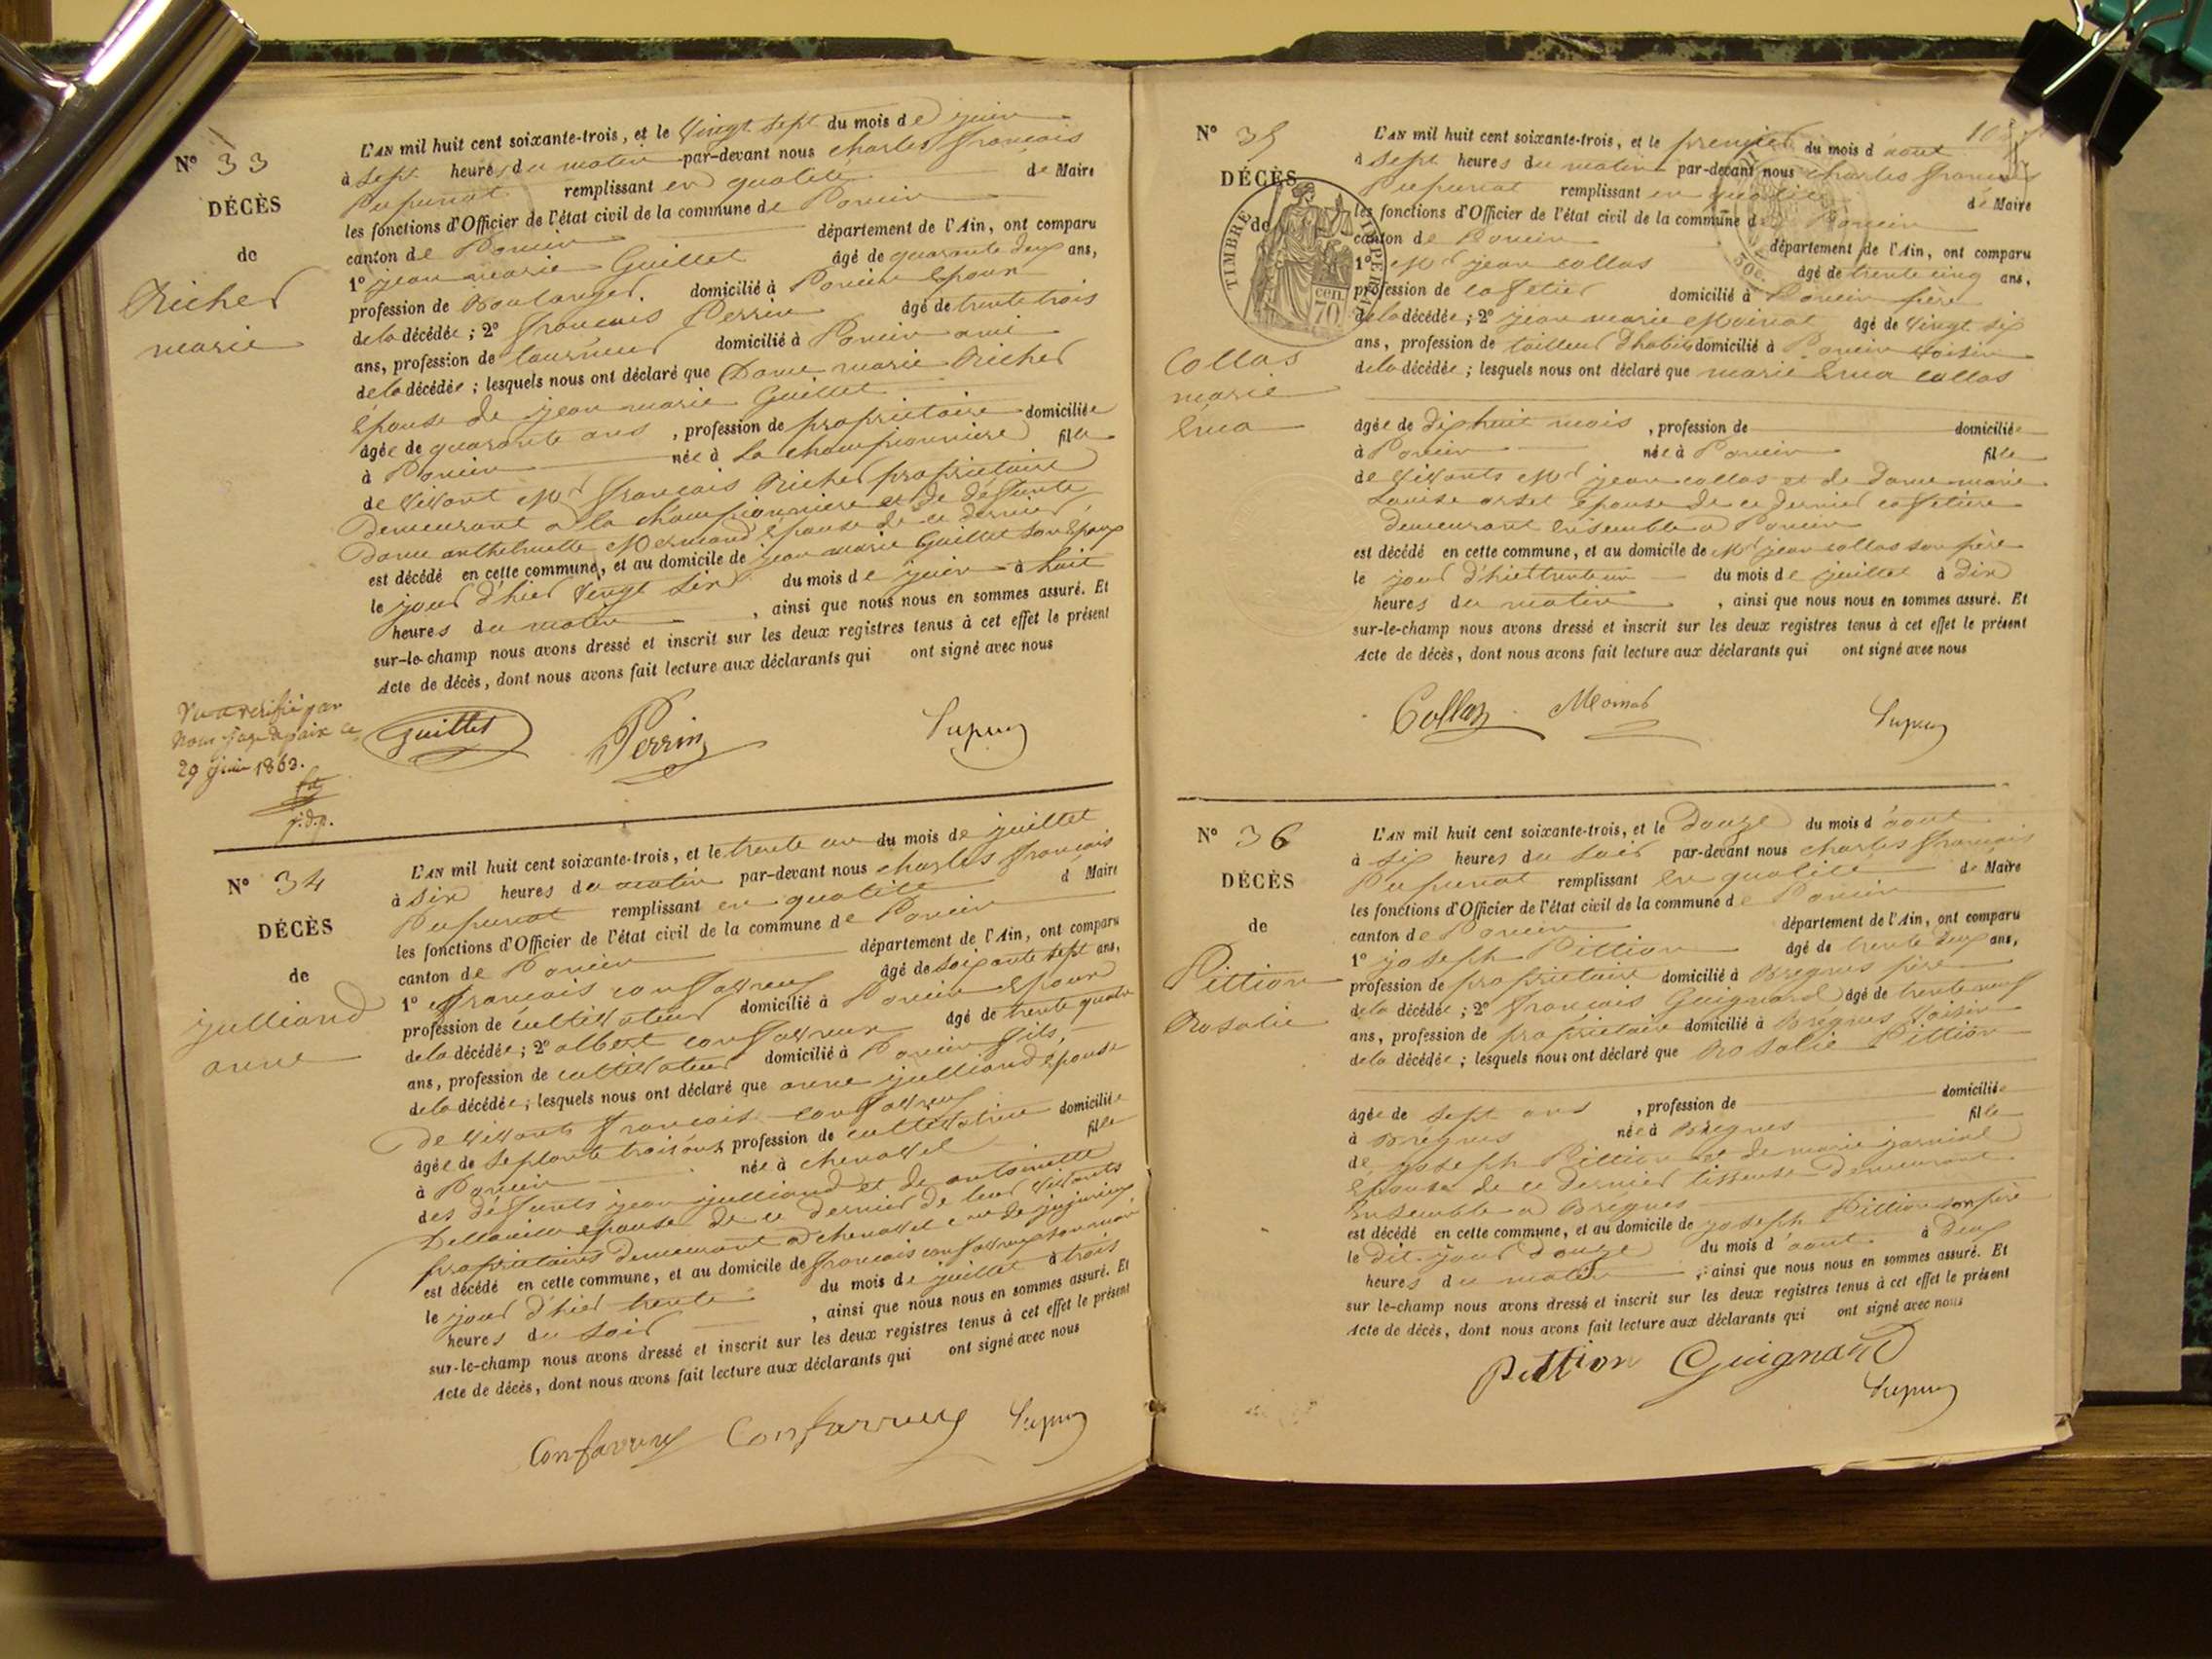 N° 33
DÉCÈS
de
Richer
marie
L'AN mil huit cent soixante-trois, et le Vingt sept du mois de juin
à sept heures du matin par-devant nous charles françois
Pupunat remplissant en qualité de Maire
les fonctions d'Officier de l'état civil de la commune de Poncin
canton de Poncin département de l'Ain, ont comparu
1° jean marie Guillet âgé de quarante deux ans,
profession de Boulanger. domicilié à Poncin Epoux
de la décédée ; 2° françois Perrin âgé de trente trois
ans, profession de tourneur domicilié à Poncin ami
de la décédée ; lesquels nous ont déclaré que Dame marie Richer
Epouse de jean marie Guillet
âgée de quarante ans , profession de propriétaire domiciliée
à Poncin née à La championnière fille
de Vivant Mr françois Richer propriétaire
Demeurant à la championnière et de défunte
Dame anthelmette Mermand épouse de ce dernier,
est décédé en cette commune, et au domicile de jean marie Guillet son Epoux
le jour d'hier Vingt six du mois de juin à huit
heures du matin , ainsi que nous nous en sommes assuré. Et
sur-le-champ nous avons dressé et inscrit sur les deux registres tenus à cet effet le présent
Acte de décès, dont nous avons fait lecture aux déclarants qui ont signé avec nous
Vu et vérifié par
Nous juge de paix ce
29 juin 1863.
j.d.p.
Guillet Perrin
N° 34
DÉCÈS
de
julliand
anne
L'AN mil huit cent soixante-trois, et le trente un du mois de juillet
à six heures du matin par-devant nous charles françois
Pupunat remplissant en qualité d Maire
les fonctions d'Officier de l'état civil de la commune de Poncin
canton de Poncin département de l'Ain, ont comparu
1° françois confavreux âgé de soixante sept ans,
profession de cultivateur domicilié à Poncin Epoux
de la décédée ; 2° albert confavreux âgé de trente quatre
ans, profession de cultivateur domicilié à Poncin fils,
de la décédée ; lesquels nous ont déclaré que anne julliand épouse
De Vivant françois confavreux
âgée de septante trois ans, profession de cultivatrice domiciliée
à Poncin née à chenavel fille
des défunts jean julliand et de antoinette
épouse de ce dernier de leur vivants
propriétaires demeurant à chenavel cne de jujurieux
est décédé en cette commune, et au domicile de françois confavreux son mari
le jour d'hier trente du mois de juillet à trois
heures du soir , ainsi que nous nous en sommes assuré. Et
sur-le-champ nous avons dressé et inscrit sur les deux registres tenus à cet effet le présent
Acte de décès, dont nous avons fait lecture aux déclarants qui ont signé avec nous
Confavreux Confavreux
N° 35
DÉCÈS
de
TIMBRE IMPÉRIAL
70 cen
Collas
marie
Ema
L'AN mil huit cent soixante-trois, et le premier du mois d'aout
à sept heures du matin par-devant nous charles françois
Pupunat remplissant en qualité de Maire
les fonctions d'Officier de l'état civil de la commune de Poncin
canton de Poncin département de l'Ain, ont comparu
1° Mr jean collas âgé de trente cinq ans,
profession de cafetier domicilié à Poncin père
de la décédée ; 2° jean marie Moinat âgé de Vingt six
ans, profession de tailleur d'habits domicilié à Poncin Voisin
de la décédée ; lesquels nous ont déclaré que marie Ema collas
âgée de dix huit mois , profession de domiciliée
à Poncin née à Poncin fille
de Vivants Mr jean collas et de Dame marie
Louise épouse de ce dernier cafetière
Demeurant Ensemble à Poncin
est décédé en cette commune, et au domicile de Mr jean collas son père
le jour d'hier trente un du mois de juillet à dix
heures du matin , ainsi que nous nous en sommes assuré. Et
sur-le-champ nous avons dressé et inscrit sur les deux registres tenus à cet effet le présent
Acte de décès, dont nous avons fait lecture aux déclarants qui ont signé avec nous
Collas Moinat
N° 36
DÉCÈS
de
Pittion
Rosalie
L'AN mil huit cent soixante-trois, et le Douze du mois d'aout
à six heures du soir par-devant nous charles françois
Pupunat remplissant en qualité de Maire
les fonctions d'Officier de l'état civil de la commune de Poncin
canton de Poncin département de l'Ain, ont comparu
1° joseph Pittion âgé de trente deux ans,
profession de propriétaire domicilié à Breignes père
de la décédée ; 2° françois Guignard âgé de trente neuf
ans, profession de propriétaire domicilié à Breignes Voisin
de la décédée ; lesquels nous ont déclaré que Rosalie Pittion
âgée de sept ans , profession de domiciliée
à Breignes née à Breignes fille
de joseph Pittion et de marie
Epouse de ce dernier tisseuse Demeurant
Ensemble à Breignes
est décédé en cette commune, et au domicile de joseph Pittion son père
le dit jour douze du mois d'aout à deux
heures du matin , ainsi que nous nous en sommes assuré. Et
sur le-champ nous avons dressé et inscrit sur les deux registres tenus à cet effet le présent
Acte de décès, dont nous avons fait lecture aux déclarants qui ont signé avec nous
Pittion Guignard